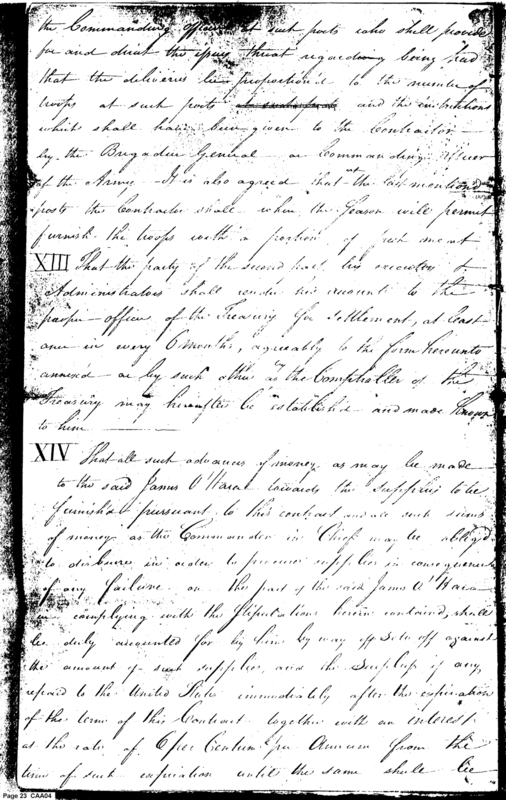 the Commanding officer at such posts who shall provide
for and direct the issues thereat regarding being had
that the deliveries be proportion'd to the number of
troops at such posts and the instructions
which shall have been given to the Contractor
by the Brigadier General or Commanding Officer
of the Army. It is also agreed that at the last mentioned
posts the Contractor shall when the Season will permit
furnish the troops with a portion of fresh meat
XIII That the party of the second part his executors &
Administrators shall render his accounts to the
proper officers of the Treasury for settlement, at least
once in every 6 months, agreeably to the form hereunto
annexed or by such other as the Comptroller of the
Treasury may hereafter be established and made known
to him
XIV That all such advances of money as may be made
to the said James O'Hara towards the supplies to be
furnish'd pursuant to this contract and all such sums
of money as the Commander in Chief may be obliged
to disburse in order to procure supplies in consequence
of any failure on the part of the said James O'Hara
in complying with the stipulations herein contained, shall
be duly accounted for by him by way of Sett off against
the amount of such supplies, and the Surplus if any,
repaid to the United States immediately after the expiration
of the term of this Contract together with an interest
at the rate of 6 per Centum per Annum from the
time of such expiration until the same shall be
Page 23 CAA04